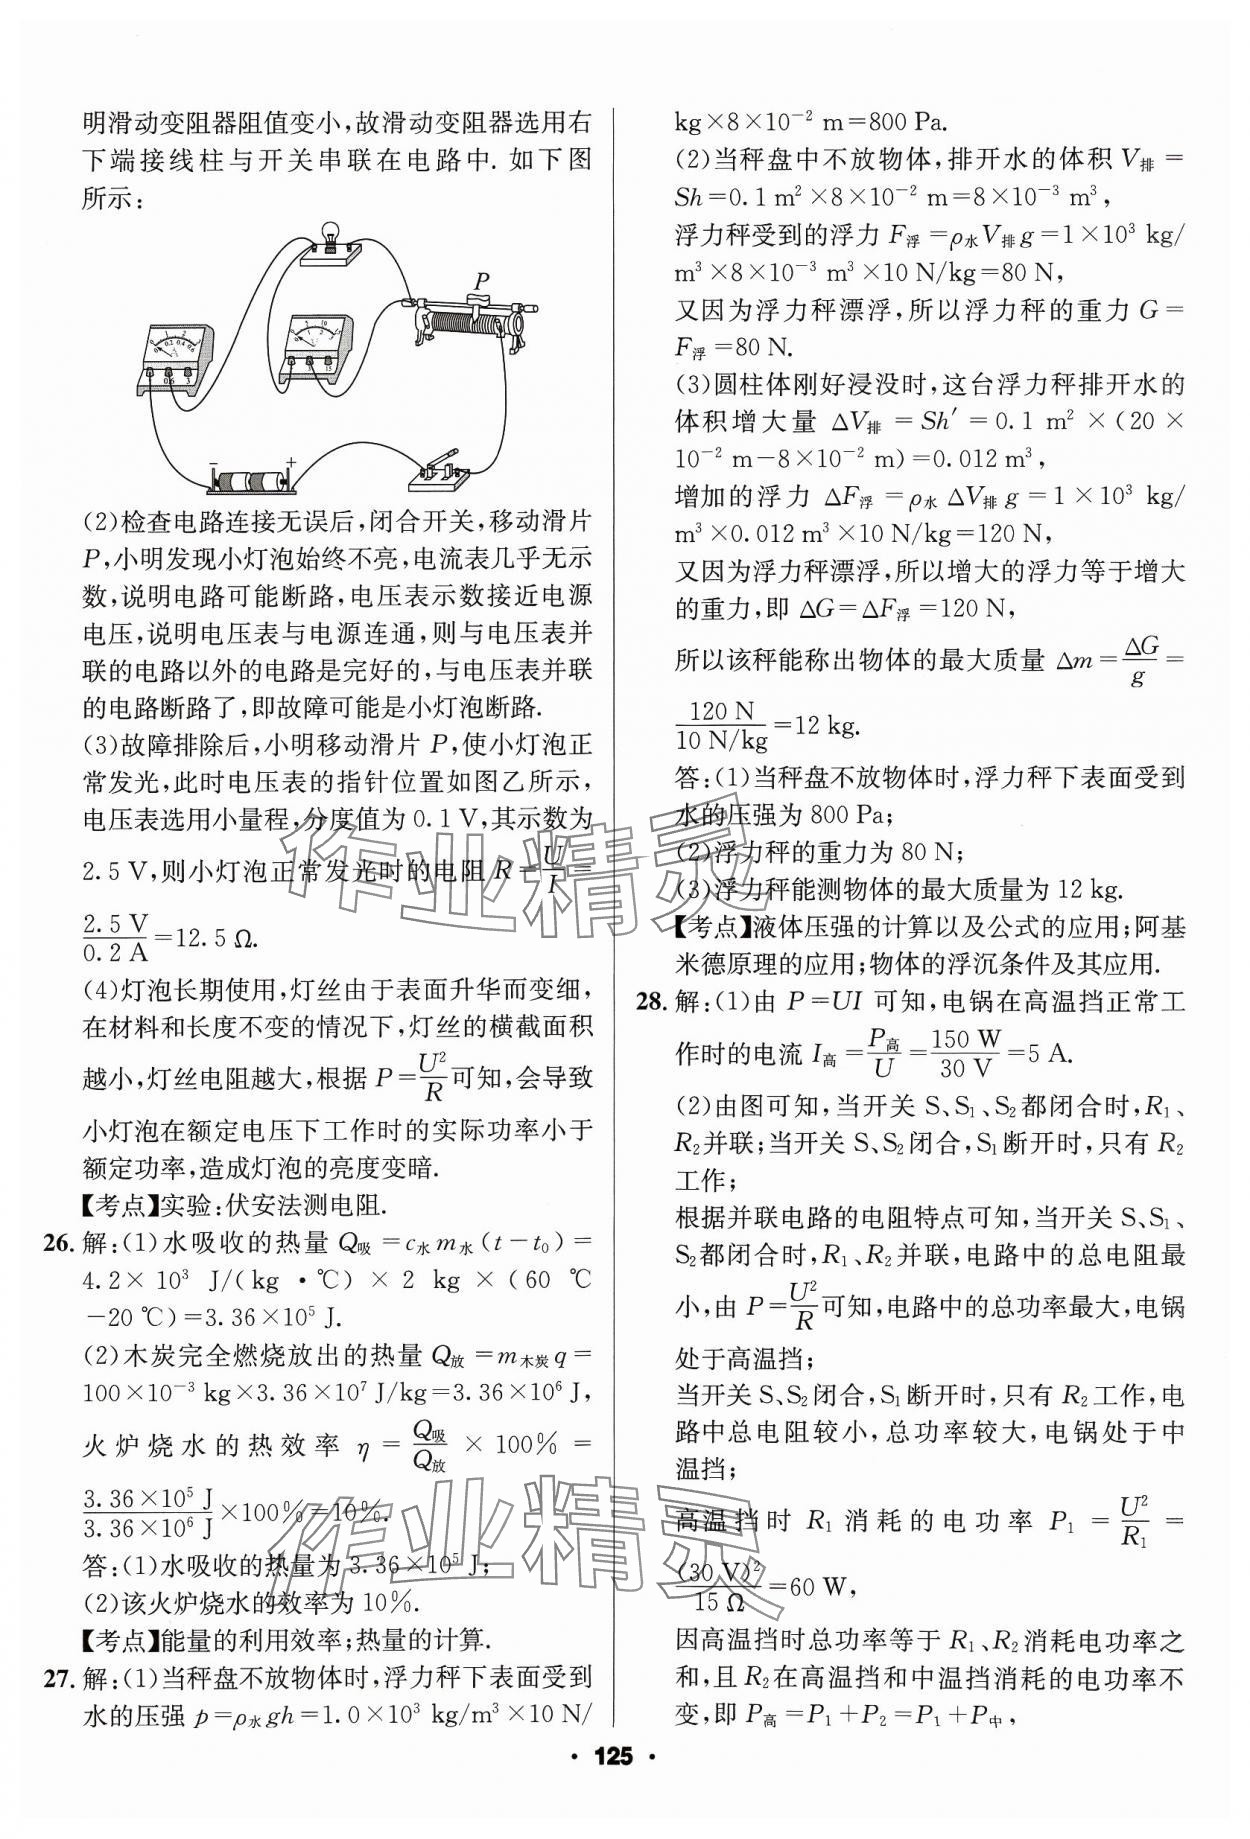 明滑动变阻器阻值变小,故滑动变阻器选用右
下端接线柱与开关串联在电路中. 如下图
所示:
P
(2)检查电路连接无误后,闭合开关,移动滑片
P,小明发现小灯泡始终不亮,电流表几乎无示
数,说明电路可能断路,电压表示数接近电源
电压,说明电压表与电源连通,则与电压表并
联的电路以外的电路是完好的,与电压表并联
的电路断路了,即故障可能是小灯泡断路.
(3)故障排除后,小明移动滑片 P,使小灯泡正
常发光,此时电压表的指针位置如图乙所示,
电压表选用小量程,分度值为 0.1 V,其示数为
2.5 V,则小灯泡正常发光时的电阻 R=U/I=
2.5 V/0.2 A=12.5 Ω.
(4)灯泡长期使用,灯丝由于表面升华而变细,
在材料和长度不变的情况下,灯丝的横截面积
越小,灯丝电阻越大,根据 P=U²/R可知,会导致
小灯泡在额定电压下工作时的实际功率小于
额定功率,造成灯泡的亮度变暗.
【考点】实验:伏安法测电阻.
26. 解:(1)水吸收的热量 Q吸=c水m水(t-t₀)=
4.2×10³ J/(kg·℃)×2 kg×(60 ℃
-20 ℃)=3.36×10⁵ J.
(2)木炭完全燃烧放出的热量 Q放=m木炭q=
100×10⁻³ kg×3.36×10⁷ J/kg=3.36×10⁶ J,
火炉烧水的热效率 η=Q吸/Q放×100%=
3.36×10⁵ J/3.36×10⁶ J×100%=10%.
答:(1)水吸收的热量为 3.36×10⁵ J;
(2)该火炉烧水的效率为 10%.
【考点】能量的利用效率;热量的计算.
27. 解:(1)当秤盘不放物体时,浮力秤下表面受到
水的压强 p=ρ水gh=1.0×10³ kg/m³×10 N/
kg×8×10⁻² m=800 Pa.
(2)当秤盘中不放物体,排开水的体积 V排=
Sh=0.1 m²×8×10⁻² m=8×10⁻³ m³,
浮力秤受到的浮力 F浮=ρ水V排g=1×10³ kg/
m³×8×10⁻³ m³×10 N/kg=80 N,
又因为浮力秤漂浮,所以浮力秤的重力 G=
F浮=80 N.
(3)圆柱体刚好浸没时,这台浮力秤排开水的
体积增大量 ΔV排=Sh′=0.1 m²×(20×
10⁻² m-8×10⁻² m)=0.012 m³,
增加的浮力 ΔF浮=ρ水ΔV排g=1×10³ kg/
m³×0.012 m³×10 N/kg=120 N,
又因为浮力秤漂浮,所以增大的浮力等于增大
的重力,即 ΔG=ΔF浮=120 N,
所以该秤能称出物体的最大质量 Δm=ΔG/g=
120 N/10 N/kg=12 kg.
答:(1)当秤盘不放物体时,浮力秤下表面受到
水的压强为 800 Pa;
(2)浮力秤的重力为 80 N;
(3)浮力秤能测物体的最大质量为 12 kg.
【考点】液体压强的计算以及公式的应用;阿基
米德原理的应用;物体的浮沉条件及其应用.
28. 解:(1)由 P=UI 可知,电锅在高温挡正常工
作时的电流 I高=P高/U=150 W/30 V=5 A.
(2)由图可知,当开关 S、S₁、S₂都闭合时,R₁、
R₂并联;当开关 S、S₂闭合,S₁断开时,只有 R₂
工作;
根据并联电路的电阻特点可知,当开关 S、S₁、
S₂都闭合时,R₁、R₂并联,电路中的总电阻最
小,由 P=U²/R可知,电路中的总功率最大,电锅
处于高温挡;
当开关 S、S₂闭合,S₁断开时,只有 R₂工作,电
路中总电阻较小,总功率较大,电锅处于中
温挡;
高温挡时 R₁消耗的电功率 P₁=U²/R₁=
(30 V)²/15 Ω=60 W,
因高温挡时总功率等于 R₁、R₂消耗电功率之
和,且 R₂在高温挡和中温挡消耗的电功率不
变,即 P高=P₁+P₂=P₁+P中,
· 125 ·
作业精灵
作业精灵